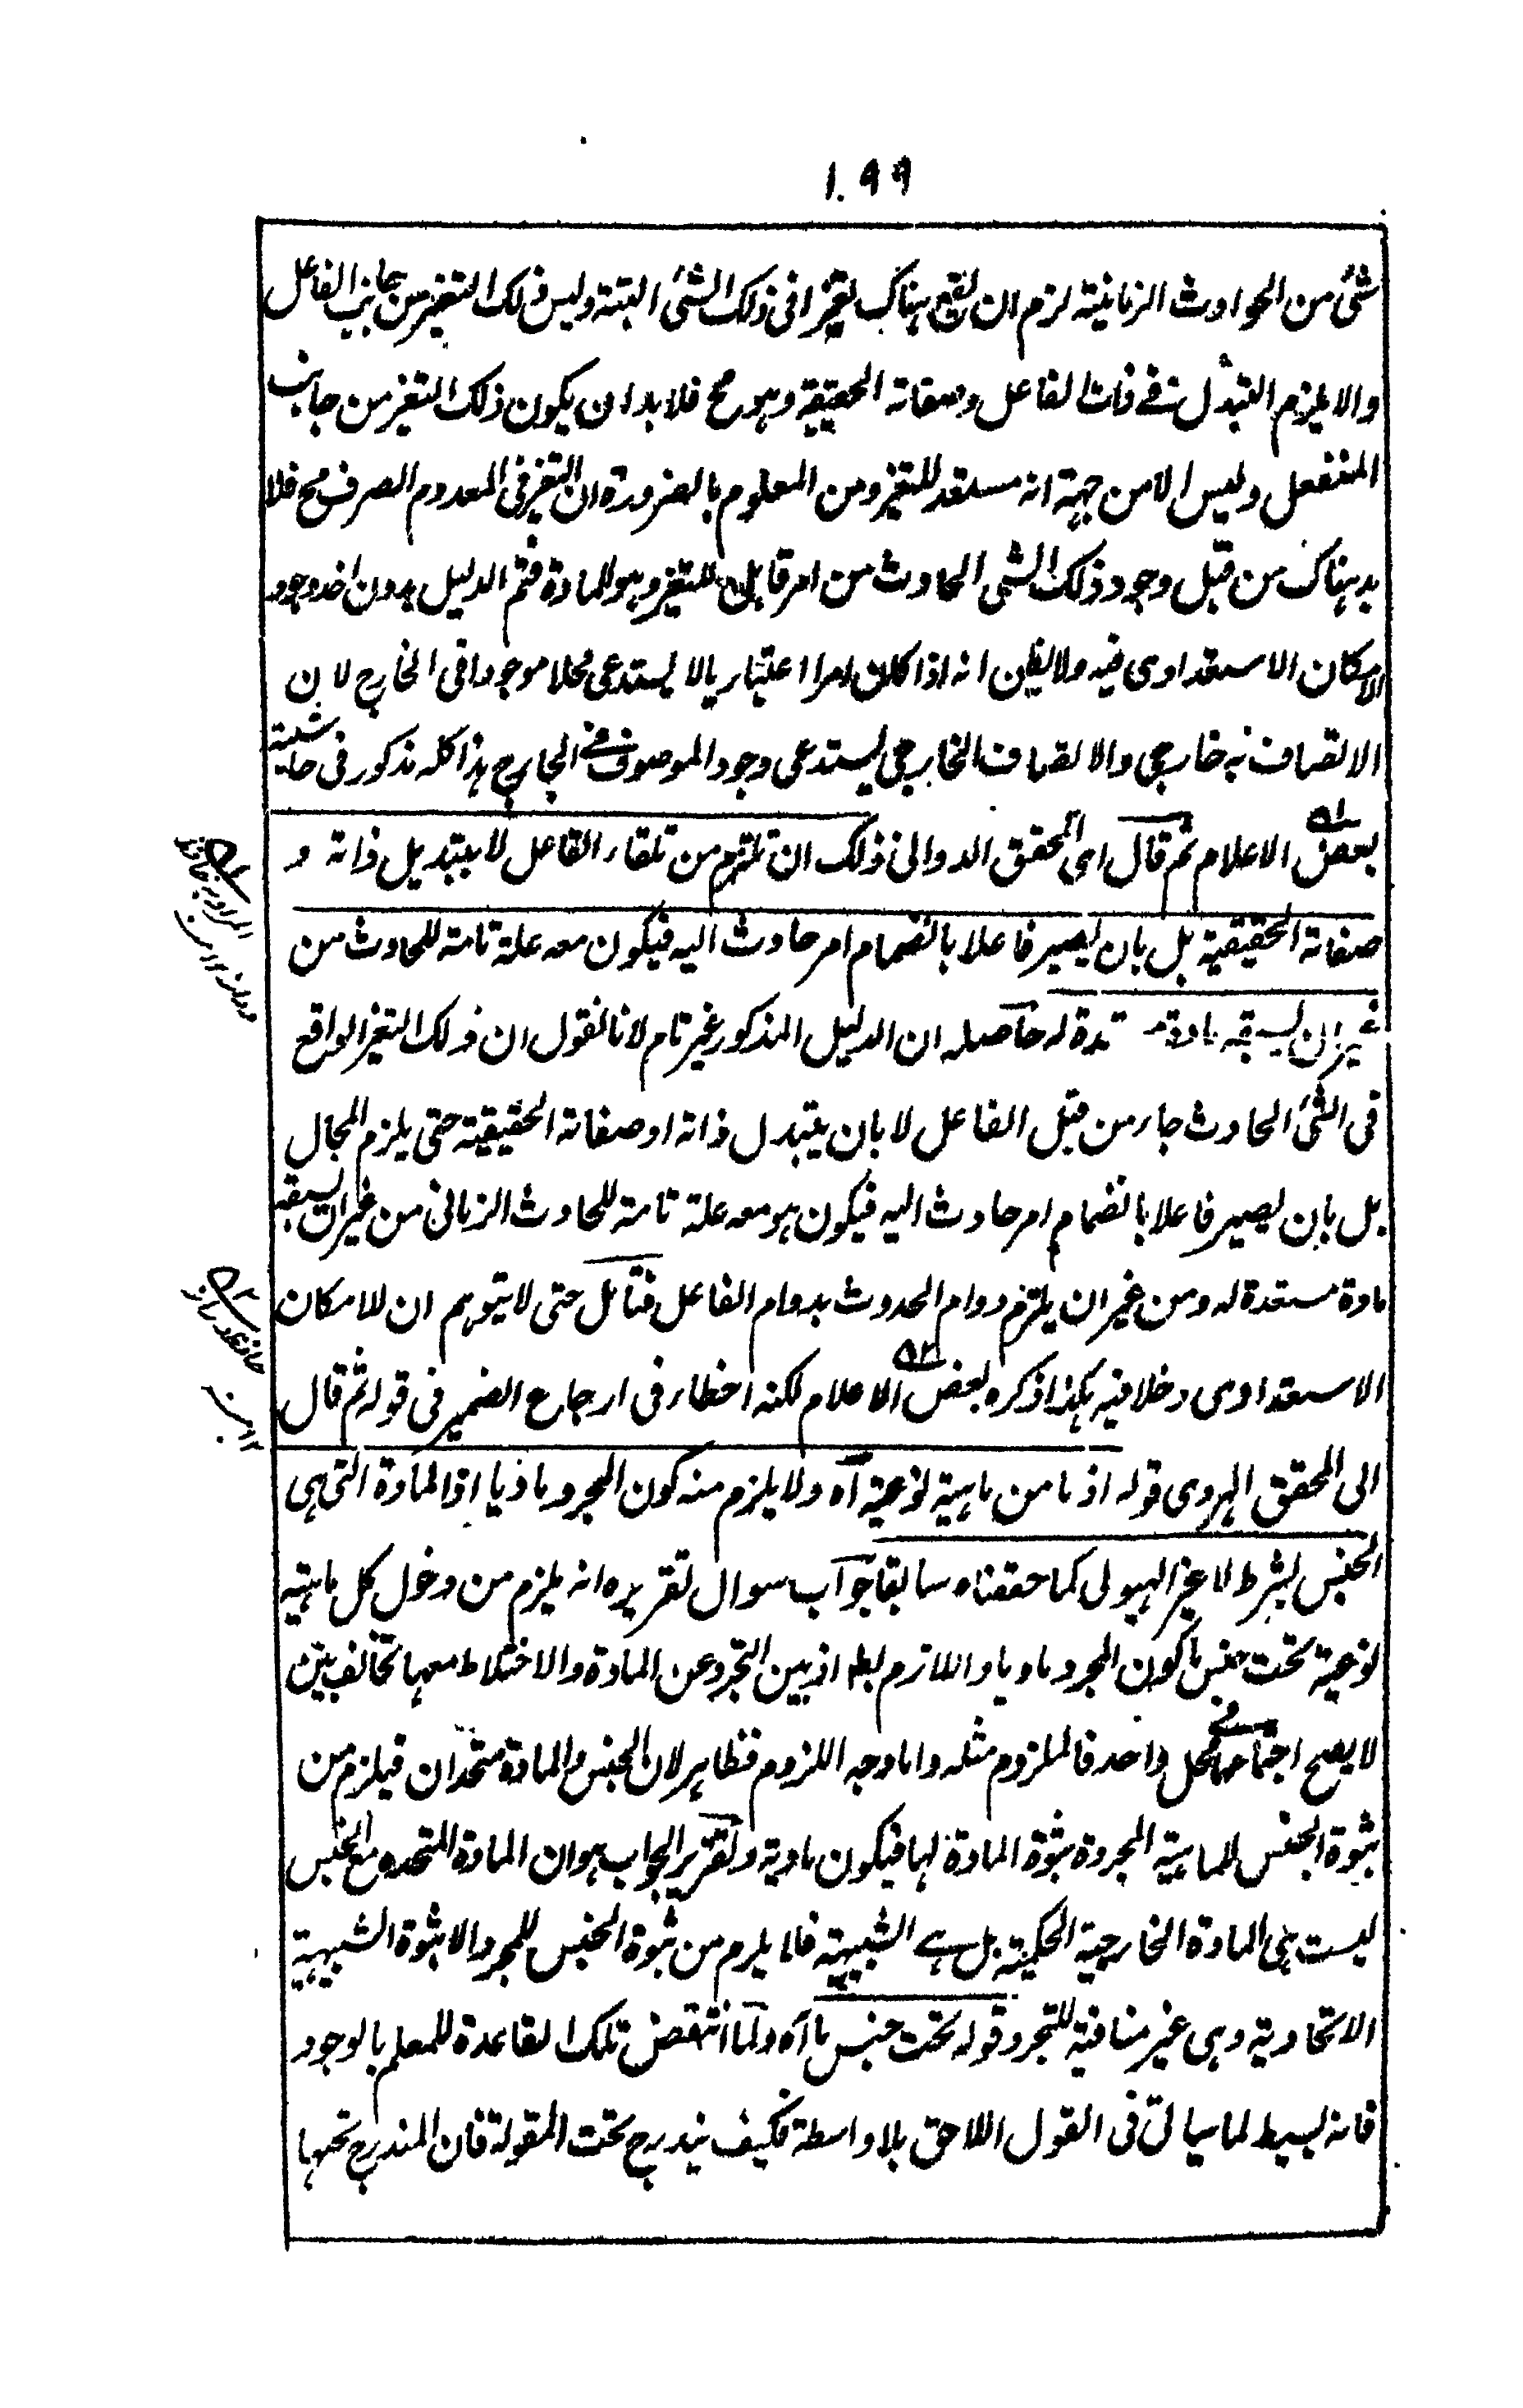 ١٠٩٩
شئ من الحوادث الزمانية لزم ان يقع هناك تغير افى ذلك الشئ البتة وليس ذلك التغير من جانب الفاعل
والا يلزم التبدل فے ذات الفاعل وصفاته الحقيقية وهو مح فلا بد ان يكون ذلك التغير من جانب
المنفعل وليس الا من جهة انه مستعد للتغير ومن المعلوم بالضرورة ان التغير فى المعدوم الصرف مح فلا
بد هناك من قبل وجود ذلك الشئ الحادث من امر قابل للتغير وهو المادة فتم الدليل بدون اخذ وجود
الامكان الاستعدادى فيه ولا يظن انه اذا كان امرا اعتباريا لا يستدعى محلا موجودا فى الخارج لان
الاتصاف به خارجى والاتصاف الخارجى يستدعى وجود الموصوف فے الخارج هذا كله مذكور فى حاشية
بعض ۵۱ الاعلام ثم قال اى المحقق الدوانى ذلك ان تلتزم من تلقاء الفاعل لا بتبديل ذاته و
صفاته الحقيقية بل بان يصير فاعلا بانضمام امر حادث اليه فيكون معه علة تامة للحادث من
غير ان يسبقه مادة له حاصله ان الدليل المذكور غير تام لانا نقول ان ذلك التغير الواقع
فى الشئ الحادث جاء من قبل الفاعل لا بان يتبدل ذاته او صفاته الحقيقية حتى يلزم المحال
بل بان يصير فاعلا بانضمام امر حادث اليه فيكون هو معه علة تامة للحادث الزمانى من غير ان يسبقه
مادة مستعدة له ومن غير ان يلتزم دوام الحدوث بدوام الفاعل فتأمل حتى لا يتوهم ان للامكان
الاستعدادى دخلا فيه هكذا ذكره بعض ۵۲ الاعلام لكنه اخطاء فى ارجاع الضمير فى قوله ثم قال
الى المحقق الهروى قوله اذ ما من ماهية نوعية آه ولا يلزم منه كون المجرد ماديا اذ المادة التى هى
الجنس بشرط لا غير الهيولى كما حققناه سابقا جواب سوال تقريره انه يلزم من دخول كل ماهية
نوعية تحت جنس ما كون المجرد ماديا واللازم بط اذ بين التجرد عن المادة والاختلاط معها تخالف بيّن
لا يصح اجتماعهما فے محل واحد فالملزوم مثله واما وجه اللزوم فظاهر لان الجنس والمادة متحدان فيلزم من
ثبوة الجنس للماهية المجردة ثبوة المادة لها فيكون مادية وتقرير الجواب هو ان المادة المتحده مع الجنس
ليست هى المادة الخارجية الحكمية بل هے الشبيهية فانما يلزم من ثبوة الجنس للمجرد الا ثبوة الشبيهية
الاتحادية وهى غير منافية للتجرد قوله تحت جنس ما آه ولما انتقض تلك القاعدة للمعلم بالوجود
فانه بسيط لما سياتى فى القول اللاحق بلا واسطة فكيف يندرج تحت المقولة فان المندرج تحتها
۵۱
المراد به
۱۲ منه
۵۲
۱۲ منه